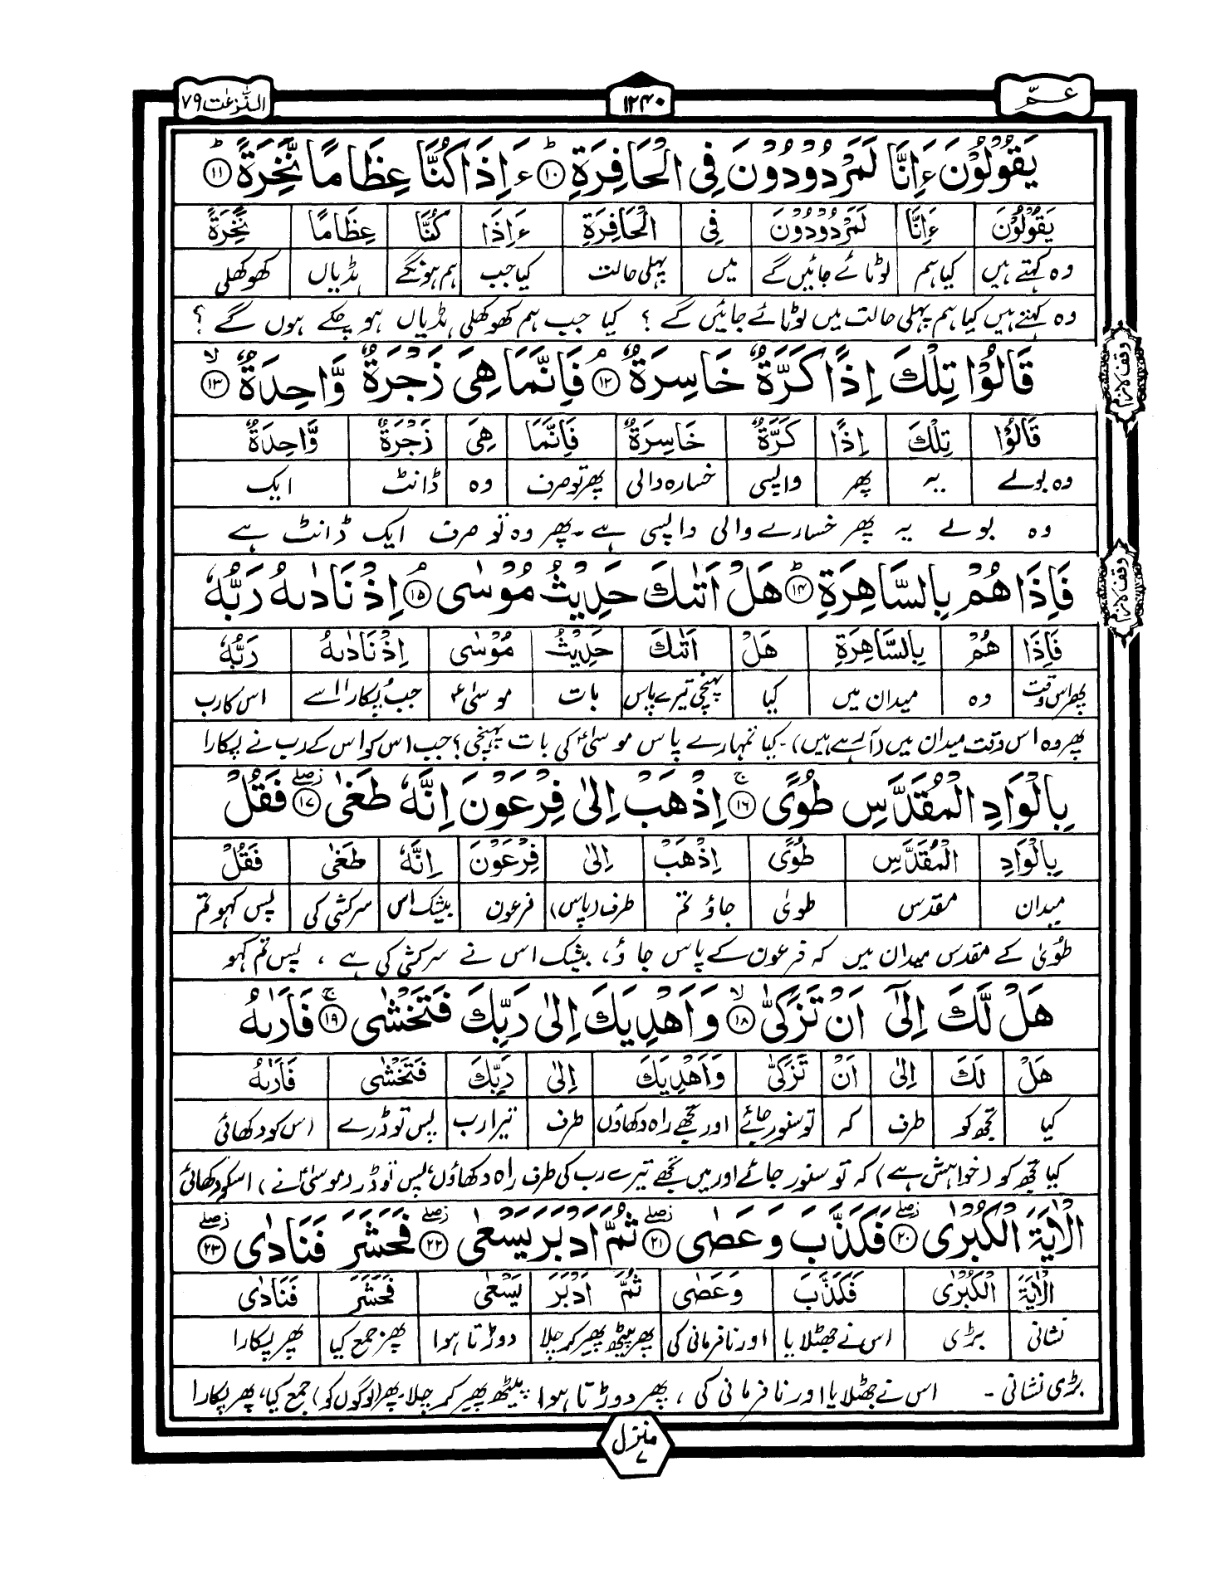 عمّ
١٢٤٠
النّٰزعٰت ٧٩
يَقُوْلُوْنَ ءَاِنَّا لَمَرْدُوْدُوْنَ فِى الْحَافِرَةِ ؕ١٠ ءَاِذَا كُنَّا عِظَامًا نَّخِرَةً ؕ١١
يَقُوْلُوْنَ ءَاِنَّا لَمَرْدُوْدُوْنَ فِى الْحَافِرَةِ ءَاِذَا كُنَّا عِظَامًا نَّخِرَةً
وہ کہتے ہیں کیا ہم لوٹائے جائیں گے میں پہلی حالت کیا جب ہم ہونگے ہڈیاں کھوکھلی
وہ کہتے ہیں کیا ہم پہلی حالت میں لوٹائے جائیں گے ؟ کیا جب ہم کھوکھلی ہڈیاں ہو چکے ہوں گے ؟
قَالُوْا تِلْكَ اِذًا كَرَّةٌ خَاسِرَةٌ ۘ١٢ فَاِنَّمَا هِىَ زَجْرَةٌ وَّاحِدَةٌ ۙ١٣
وقف لازم
قَالُوْا تِلْكَ اِذًا كَرَّةٌ خَاسِرَةٌ فَاِنَّمَا هِىَ زَجْرَةٌ وَّاحِدَةٌ
وہ بولے یہ پھر واپسی خسارہ والی پھر تو صرف وہ ڈانٹ ایک
وہ بولے یہ پھر خسارے والی واپسی ہے ۔ پھر وہ تو صرف ایک ڈانٹ ہے
فَاِذَا هُمْ بِالسَّاهِرَةِ ؕ١٤ هَلْ اَتٰىكَ حَدِيْثُ مُوْسٰى ۘ١٥ اِذْ نَادٰىهُ رَبُّهٗ
وقف لازم
فَاِذَا هُمْ بِالسَّاهِرَةِ هَلْ اَتٰىكَ حَدِيْثُ مُوْسٰى اِذْ نَادٰىهُ رَبُّهٗ
پھر اس وقت وہ میدان میں کیا پہنچی تیرے پاس بات موسیٰؑ جب پکارا اسے اس کا رب
پھر وہ اس وقت میدان میں (آ رہے ہیں) ۔ کیا تمہارے پاس موسیٰؑ کی بات پہنچی ؟ جب اس کو اس کے رب نے پکارا
بِالْوَادِ الْمُقَدَّسِ طُوًى ۚ١٦ اِذْهَبْ اِلٰى فِرْعَوْنَ اِنَّهٗ طَغٰى ۖ١٧ فَقُلْ
بِالْوَادِ الْمُقَدَّسِ طُوًى اِذْهَبْ اِلٰى فِرْعَوْنَ اِنَّهٗ طَغٰى فَقُلْ
میدان مقدس طویٰ جاؤ تم طرف (پاس) فرعون بیشک اس سرکشی کی پس کہو تم
طُویٰ کے مقدس میدان میں کہ فرعون کے پاس جاؤ، بیشک اس نے سرکشی کی ہے ، پس تم کہو
هَلْ لَّكَ اِلٰٓى اَنْ تَزَكّٰى ۙ١٨ وَاَهْدِيَكَ اِلٰى رَبِّكَ فَتَخْشٰى ۚ١٩ فَاَرٰىهُ
هَلْ لَكَ اِلٰى اَنْ تَزَكّٰى وَاَهْدِيَكَ اِلٰى رَبِّكَ فَتَخْشٰى فَاَرٰىهُ
کیا تجھ کو طرف کہ تو سنور جائے اور تجھے راہ دکھاؤں طرف تیرا رب پس تو ڈرے اس کو دکھائی
کیا تجھ کو (خواہش ہے) کہ تو سنور جائے اور میں تجھے تیرے رب کی طرف راہ دکھاؤں، پس تو ڈر (موسیٰؑ نے) اسکو دکھائی
الْاٰيَةَ الْكُبْرٰى ۖ٢٠ فَكَذَّبَ وَعَصٰى ۖ٢١ ثُمَّ اَدْبَرَ يَسْعٰى ۖ٢٢ فَحَشَرَ فَنَادٰى ۖ٢٣
الْاٰيَةَ الْكُبْرٰى فَكَذَّبَ وَعَصٰى ثُمَّ اَدْبَرَ يَسْعٰى فَحَشَرَ فَنَادٰى
نشانی بڑی اس نے جھٹلایا اور نافرمانی کی پھر پیٹھ پھیر کر چلا دوڑتا ہوا پھر جمع کیا پھر پکارا
بڑی نشانی ۔ اس نے جھٹلایا اور نافرمانی کی ، پھر دوڑتا ہوا پیٹھ پھیر کر چلا۔ پھر (لوگوں کو) جمع کیا، پھر پکارا
منزل ٧